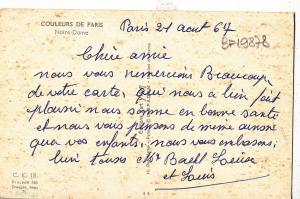 COULEURS DE PARIS
Notre-Dame
Paris 21 aout 67
Chère amie
nous vous remercions Beaucoup
de votre carte, qui nous a bien fait
plaisir nous somme en bonne santé
et nous vous pensons de meme aussi
que vos enfants, nous vous embrassons
bien tous Baell Louise
et Louis
C. K. 18